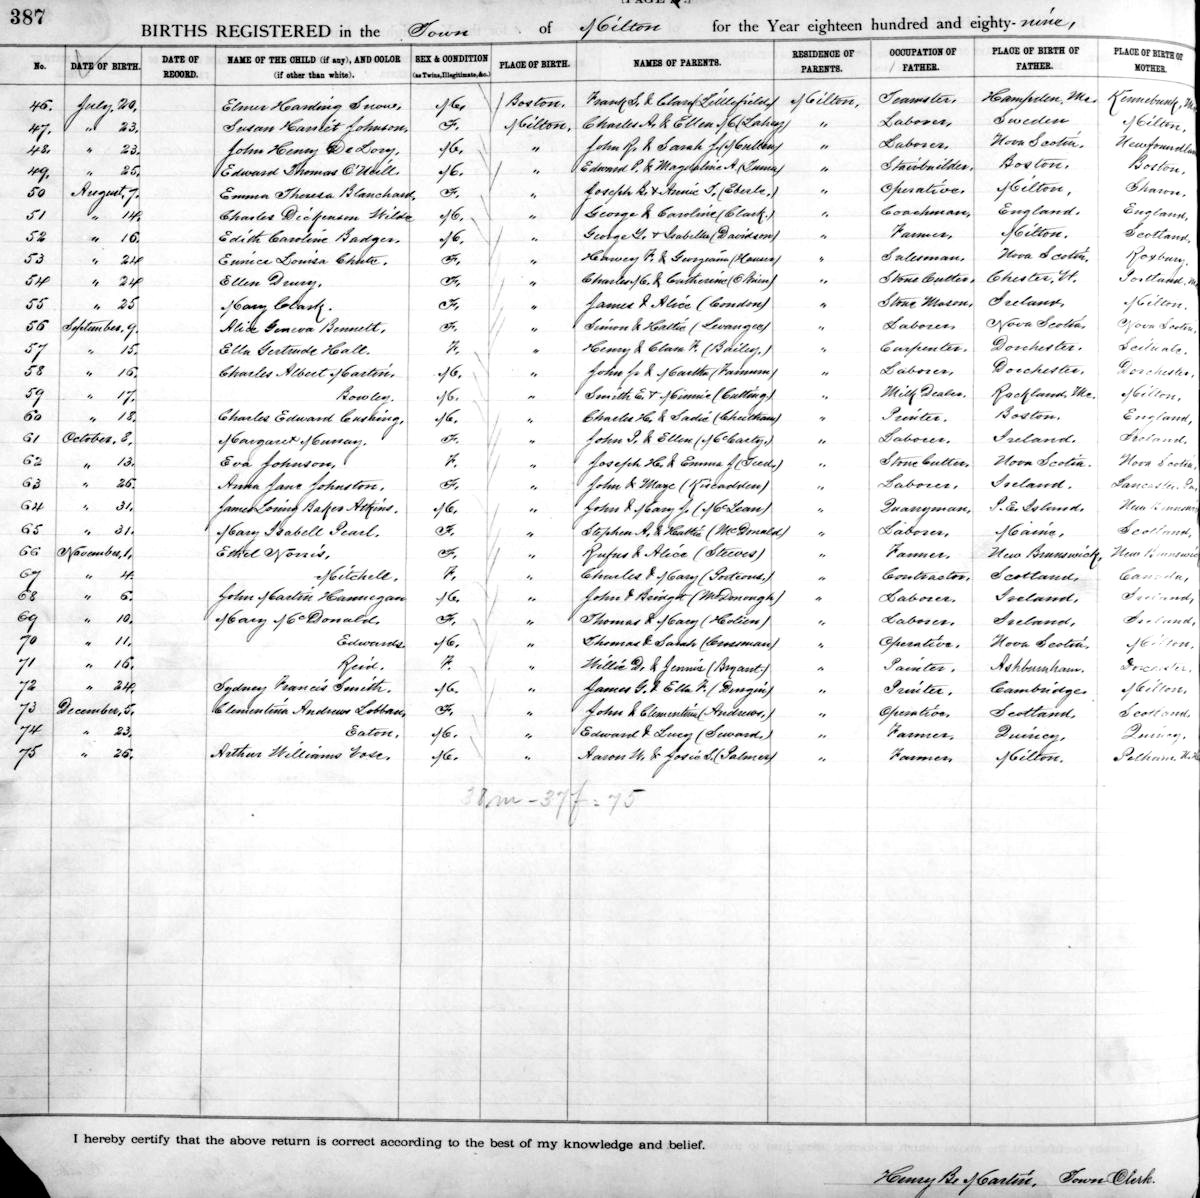 387
BIRTHS REGISTERED in the Town of Milton for the Year eighteen hundred and eighty-nine,
No. DATE OF BIRTH. DATE OF RECORD. NAME OF THE CHILD (if any), AND COLOR (if other than white). SEX & CONDITION (as Twins, Illegitimate, &c.) PLACE OF BIRTH. NAMES OF PARENTS. RESIDENCE OF PARENTS. OCCUPATION OF FATHER. PLACE OF BIRTH OF FATHER. PLACE OF BIRTH OF MOTHER.
46. July, 20, Elmer Harding Snow, M. Boston. Frank S. & Clara (Littlefield) Milton, Teamster, Hampden, Me. Kennebunk,
47. " 23. Susan Harriet Johnson, F. Milton, Charles A. & Ellen M. (Lahey) " Laborer, Sweden Milton,
48. " 23. John Henry De Lory, M. " John R. & Sarah J. (Mullen) " Laborer, Nova Scotia, Newfoundland
49. " 25. Edward Thomas O'Neill M. " Edward P. & Magdaline A. " Stairbuilder, Boston. Boston,
50 August, 7. Emma Theresa Blanchard, F. " Joseph B. & Annie T. (Eberle,) " Operative, Milton, Sharon,
51 " 14. Charles Dickenson Wilde M. " George & Caroline (Clark,) " Coachman, England, England,
52 " 16. Edith Caroline Badger, F. " George G. & Isabella (Davidson) " Farmer, Milton. Scotland,
53 " 24 Eunice Louisa Chute, F. " Harvey F. & Georgiana " Salesman, Nova Scotia, Roxbury.
54 " 24 Ellen Drury, F. " Charles M. & Catherine (O'Brien) " Stone Cutter, Chester, Vt. Portland, Me
55 " 25 Mary Clark. F. " James & Alice (Condon) " Stone Mason, Ireland, Milton.
56 September, 9. Alice Geneva Bennett, F. " Simon & Hattie (Levangee) " Laborer Nova Scotia, Nova Scotia,
57 " 15. Ella Gertrude Hall. F. " Henry & Clara F. (Bailey,) " Carpenter, Dorchester. Scituate.
58 " 16. Charles Albert Martin, M. " John Jr & Martha (Farnum) " Laborer, Dorchester, Dorchester,
59 " 17. Bowley, M. " Smith E. & Minnie (Cutting) " Milk Dealer, Rockland, Me. Milton,
60 " 18. Charles Edward Cushing, M. " Charles H. & Sadie (Cheetham) " Printer, Boston. England,
61 October, 8, Margaret Murray. F. " John P. & Ellen (McCarty,) " Laborer, Ireland. Ireland.
62 " 13. Eva Johnson, F. " Joseph H. & Emma J. " Stone Cutter, Nova Scotia. Nova Scotia,
63 " 26. Anna Jane Johnston, F. " John & Mary (Kiscadden) " Laborer, Ireland. Lancaster, Pa.
64 " 31. James Loring Baker Atkins. M. " John & Mary J. (McLean) " Quarryman, P. E. Island. New Brunswick
65 " 31. Mary Isabell Pearl, F. " Stephen A. & Hattie (McDonald) " Laborer, Maine, Scotland,
66 November, 1. Ethel Norris, F. " Rufus & Alice (Steves) " Farmer, New Brunswick, New Brunswick
67 " 4. Mitchell, F. " Charles & Mary (Porteous,) " Contractor, Scotland, Canada,
68 " 6. John Martin Hannegan M. " John & Bridget (McDonough) " Laborer, Ireland, Ireland,
69 " 10. Mary McDonald, F. " Thomas & Mary " Laborer, Ireland, Ireland,
70 " 11. Edwards M. " Thomas & Sarah (Crossman) " Operative, Nova Scotia, Milton,
71 " 16. Reid, F. " Willie D. & Jennie (Bryant,) " Painter, Ashburnham. Dorchester,
72 " 24, Sydney Francis Smith. M. " James G. & Ella F. " Printer, Cambridge, Milton,
73 December, 5. Clementina Andrews Lobban, F. " John & Clementina (Andrews,) " Operative, Scotland, Scotland,
74 " 23. Eaton, M. " Edward & Lucy (Seward,) " Farmer, Quincy, Quincy,
75 " 26. Arthur Williams Vose, M. " Aaron W. & Josie S. (Palmer) " Farmer, Milton. Pelham, N.H.
38m - 37f = 75
I hereby certify that the above return is correct according to the best of my knowledge and belief.
Henry B. Martin, Town Clerk.